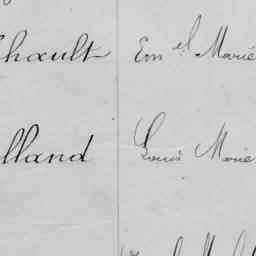 hault Em.el Marie
lland Louis Marie